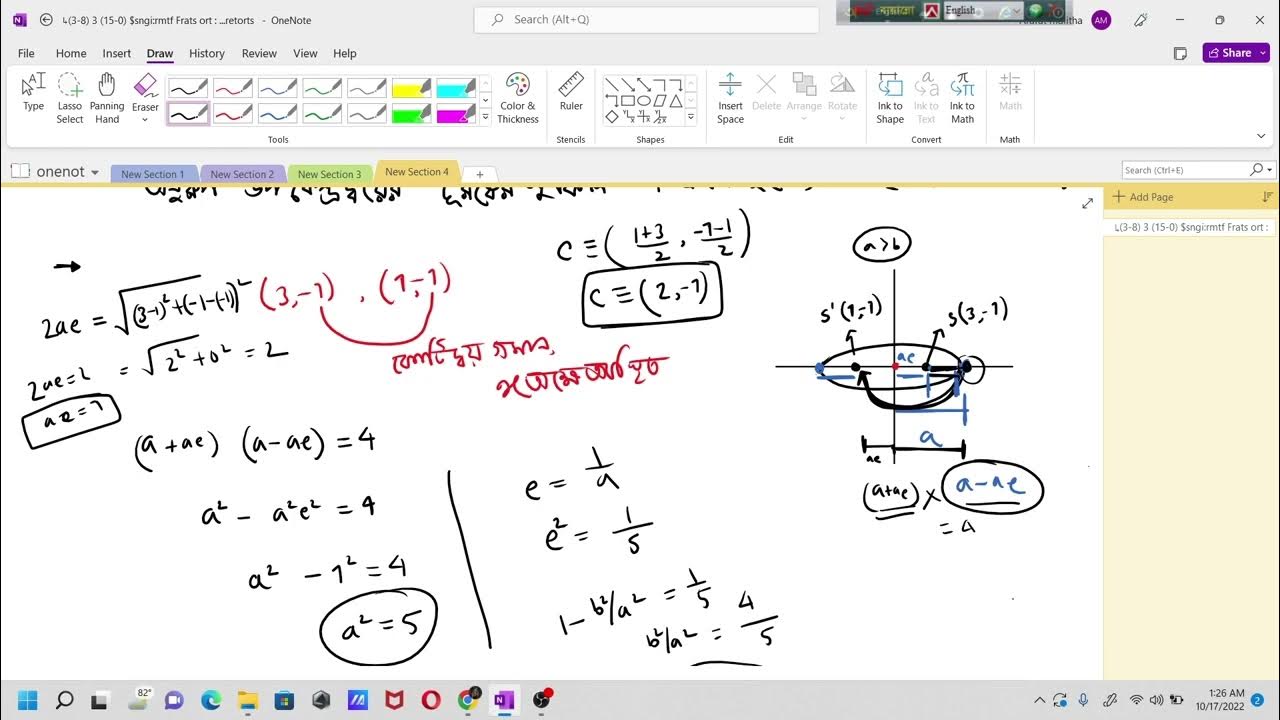 L(3-8) 3 (15-0) $sngi:rmtf Frats ort : - OneNote
Search (Alt+Q)
English
AM
File Home Insert Draw History Review View Help
Share
Type
Lasso Select
Panning Hand
Eraser
Color & Thickness
Ruler
Insert Space
Delete
Arrange
Rotate
Ink to Shape
Ink to Text
Ink to Math
Math
Tools
Stencils
Shapes
Edit
Convert
Math
onenot
New Section 1
New Section 2
New Section 3
New Section 4
Search (Ctrl+E)
Add Page
L(3-8) 3 (15-0) $sngi:rmtf Frats ort :
C ≡ (1+3/2 , -1-1/2)
C ≡ (2,-1)
2ae = √(3-1)²+(-1-(-1))²
(3,-1) , (1,-1)
= √2²+0² = 2
2ae=2
ae=1
(a+ae) (a-ae) = 4
a² - a²e² = 4
a² - 1² = 4
a² = 5
e = 1/a
e² = 1/5
1 - b²/a² = 1/5
b²/a² = 4/5
a>b
s'(1,-1)
s(3,-1)
ae
a
ae
(a+ae) × a-ae
= 4
82°
1:26 AM
10/17/2022
2